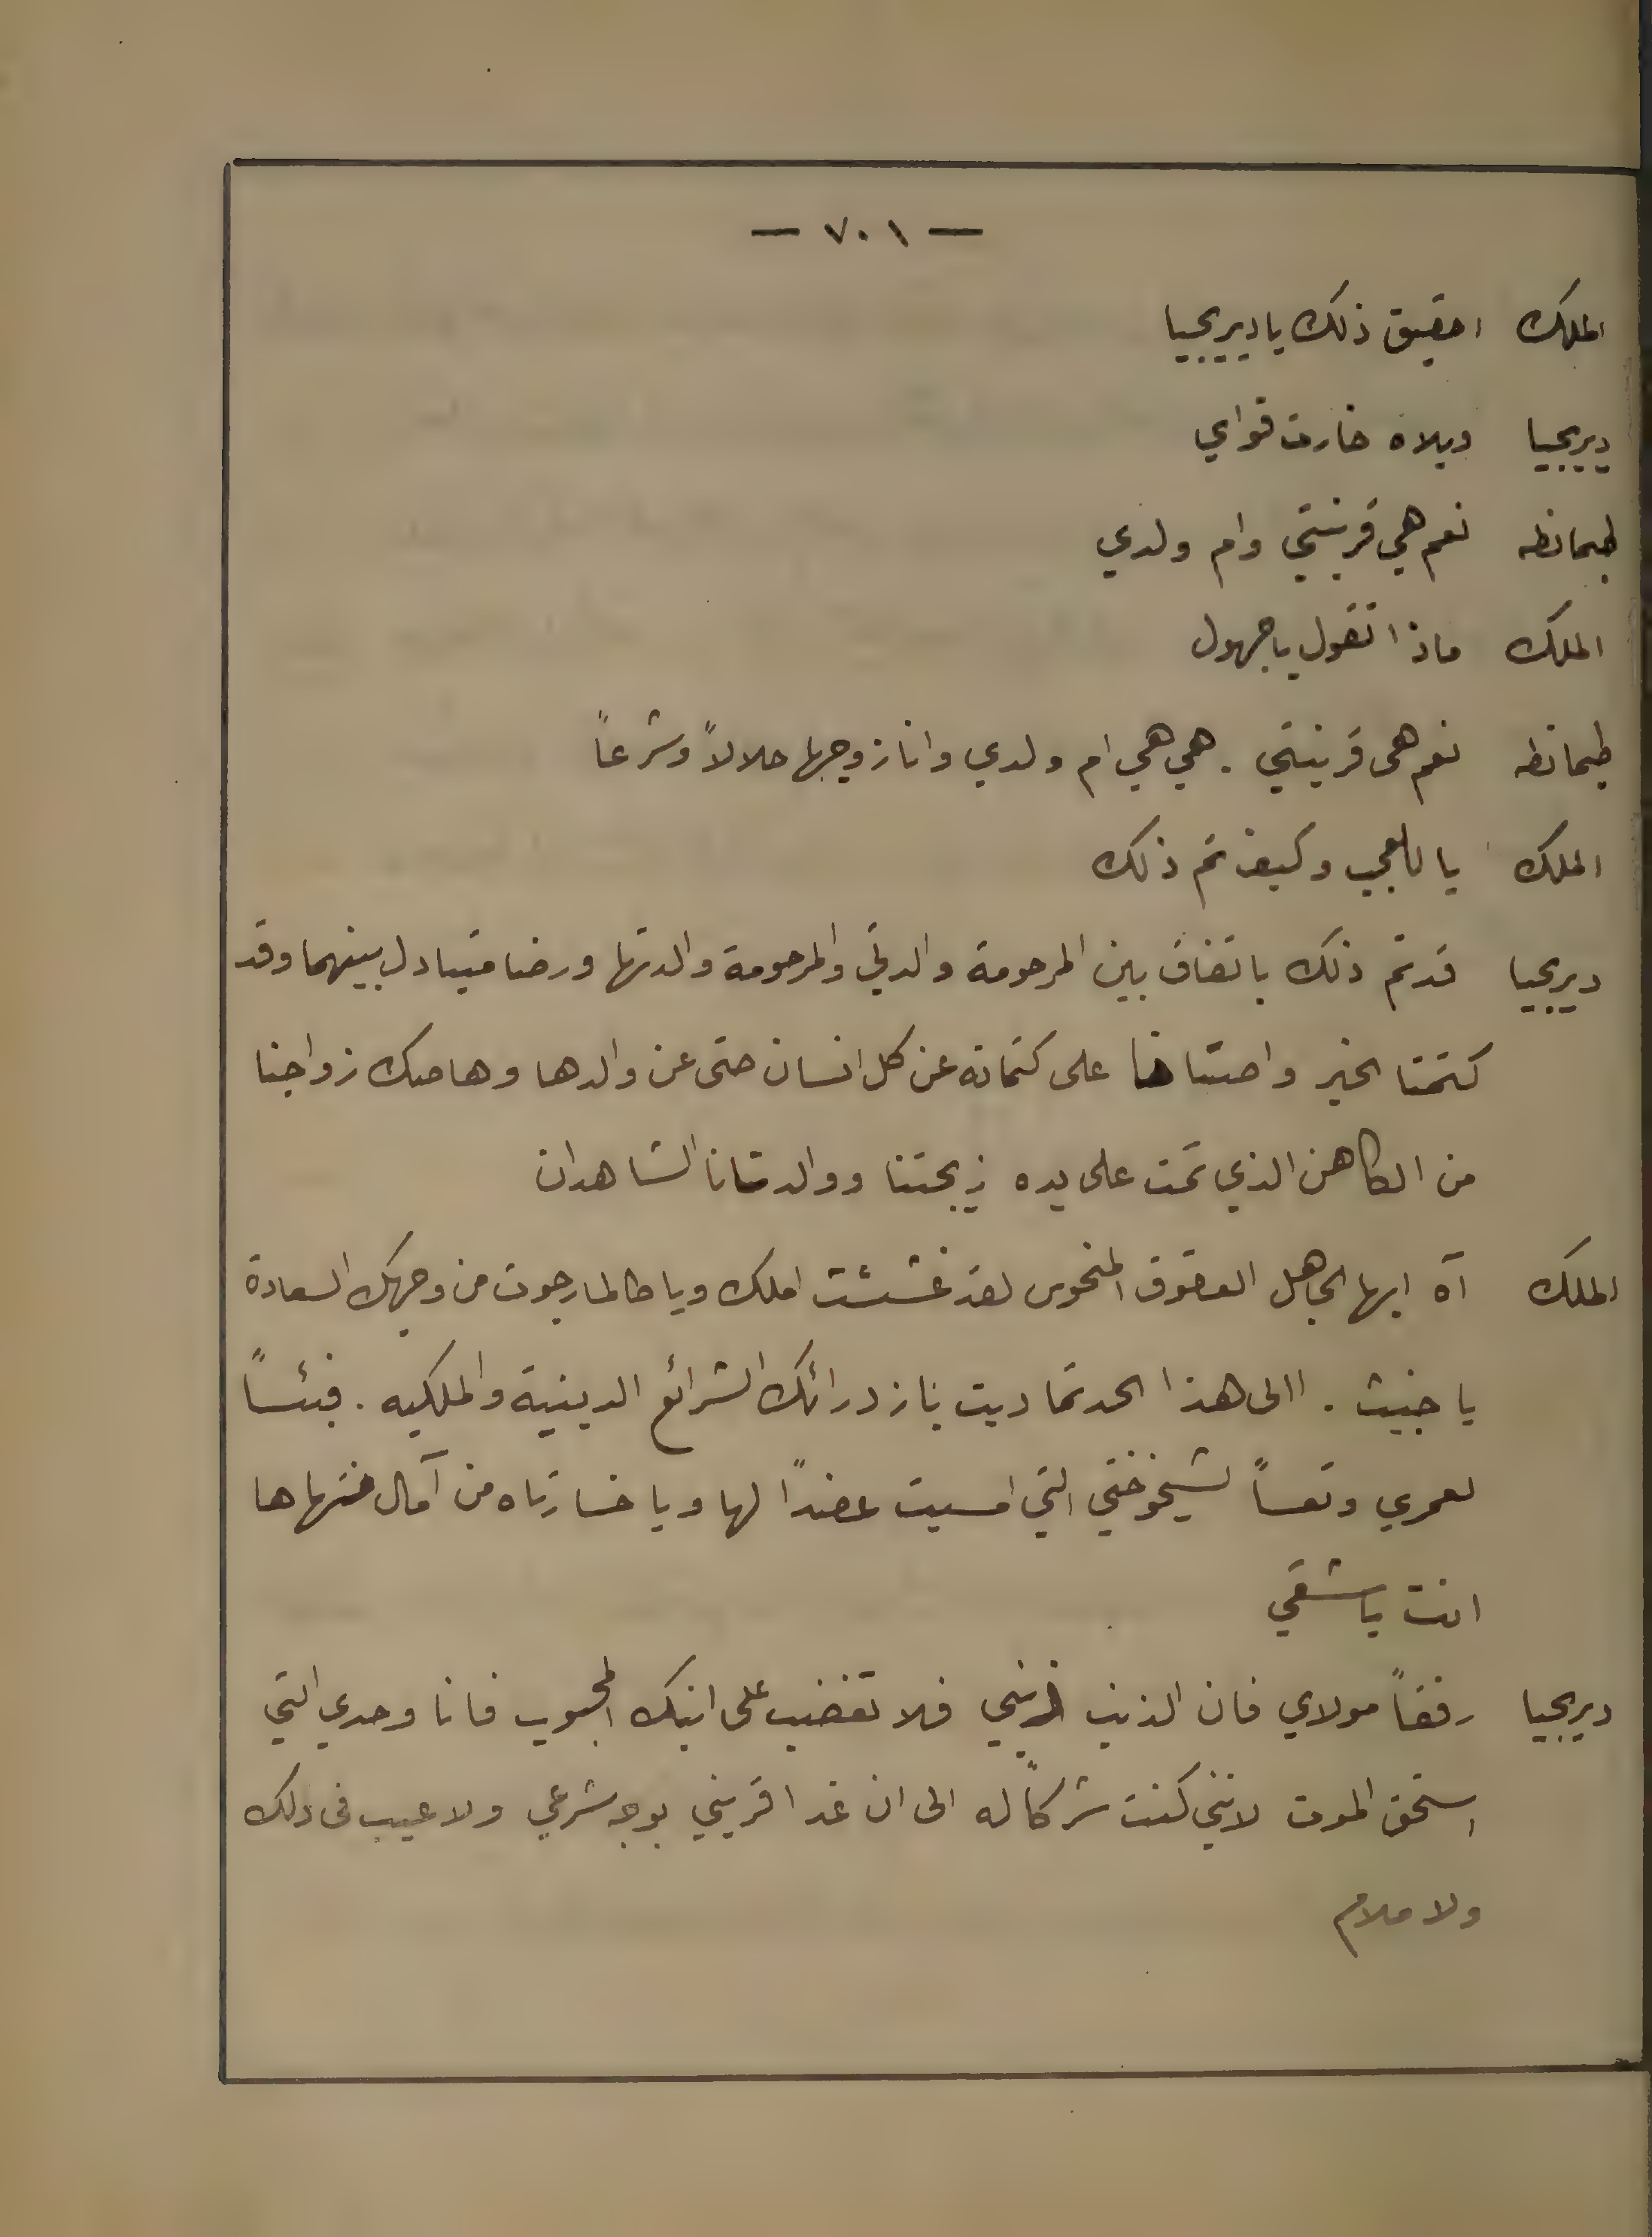 — ٧٠١ —
الملك احقيق ذلك يا ديريجيا
ديريجيا ويلاه خارت قواي
طيمانطه نعم هي قرينتي وام ولدي
الملك ماذا تقول يا جهول
طيمانطه نعم هى قرينتي . هي هي ام ولدي وانا زوجها حلالاً وشرعاً
الملك يا للعجب وكيف تم ذلك
ديريجيا قد تم ذلك باتفاق بين المرحومة والدتي والمرحومة والدتها ورضا متبادل بينهما وقد
كتمتا الخبر على كتمانه عن كل انسان حتى عن والدها وها صك زواجنا
من الكاهن الذي تمت على يده زيجتنا ووالدتانا الشاهدان
الملك آه ايها الجاهل العقوق المنحوس لقد غششت املك ويا طالما رجوت من وجهك السعادة
يا خبيث . االى هذا الحد تماديت بازدرائك الشرائع الدينية والملكيه . فبئساً
لعمري وتعساً لشيخوختي التي امسيت عضداً لها ويا خسارتاه من آمال
انت يا شقي
ديريجيا رفقاً مولاي فان الذنب ذنبي فلا تغضب على ابنك المحبوب فانا وحدي التي
استحق الموت لانني كنت شركاً له الى ان غدا قريني بوجه شرعي ولا عيب فى ذلك
ولا ملام